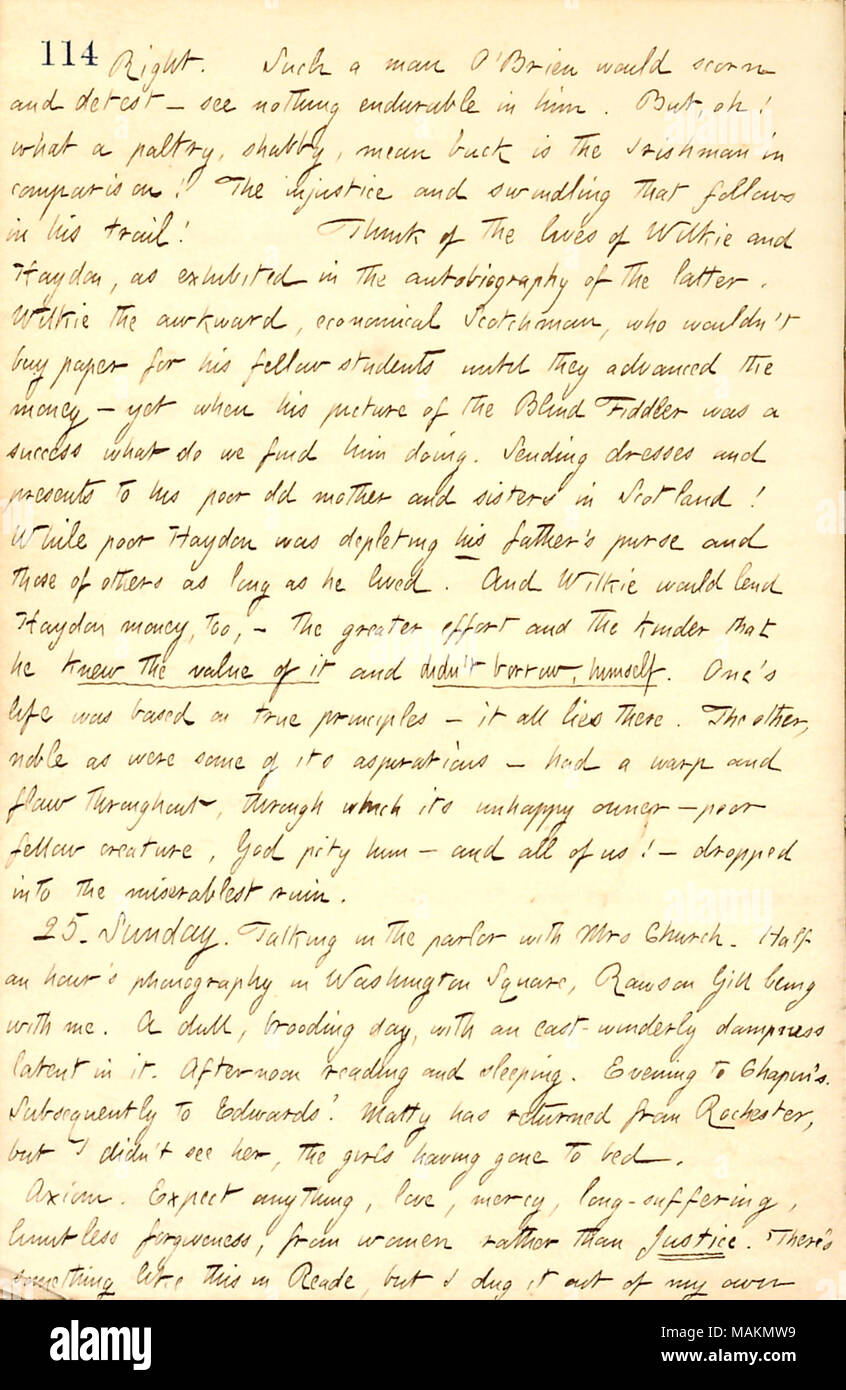 114 Right. Such a man O'Brien would scorn
and detest — see nothing endurable in him. But, oh!
what a paltry, shabby, mean buck is the Irishman in
comparison! The injustice and swindling that follows
in his trail! Think of the lives of Wilkie and
Haydon, as exhibited in the autobiography of the latter.
Wilkie the awkward, economical Scotchman, who wouldn't
buy paper for his fellow students until they advanced the
money — yet when his picture of the Blind Fiddler was a
success what do we find him doing. Sending dresses and
presents to his poor old mother and sisters in Scotland!
While poor Haydon was depleting his father's purse and
those of others as long as he lived. And Wilkie would lend
Haydon money, too, — the greater effort and the kinder that
he knew the value of it and didn't borrow, himself. One's
life was based on true principles — it all lies there. The other,
noble as were some of its aspirations — had a warp and
flaw throughout, through which its unhappy owner — poor
fellow creature, God pity him — and all of us! — dropped
into the miserablest ruin.
25. Sunday. Talking in the parlor with Mrs Church. Half
an hour's phonography in Washington Square, Rawson Gill being
with me. A dull, brooding day, with an east-winderly dampness
latent in it. Afternoon reading and sleeping. Evening to Chapin's.
Subsequently to Edwards'. Matty has returned from Rochester,
but I didn't see her, the girls having gone to bed.
Axiom. Expect anything, love, mercy, long-suffering,
limitless forgiveness, from women rather than Justice. There's
something like this in Reade, but I dug it out of my own
alamy
Image ID: MAKMW9
www.alamy.com